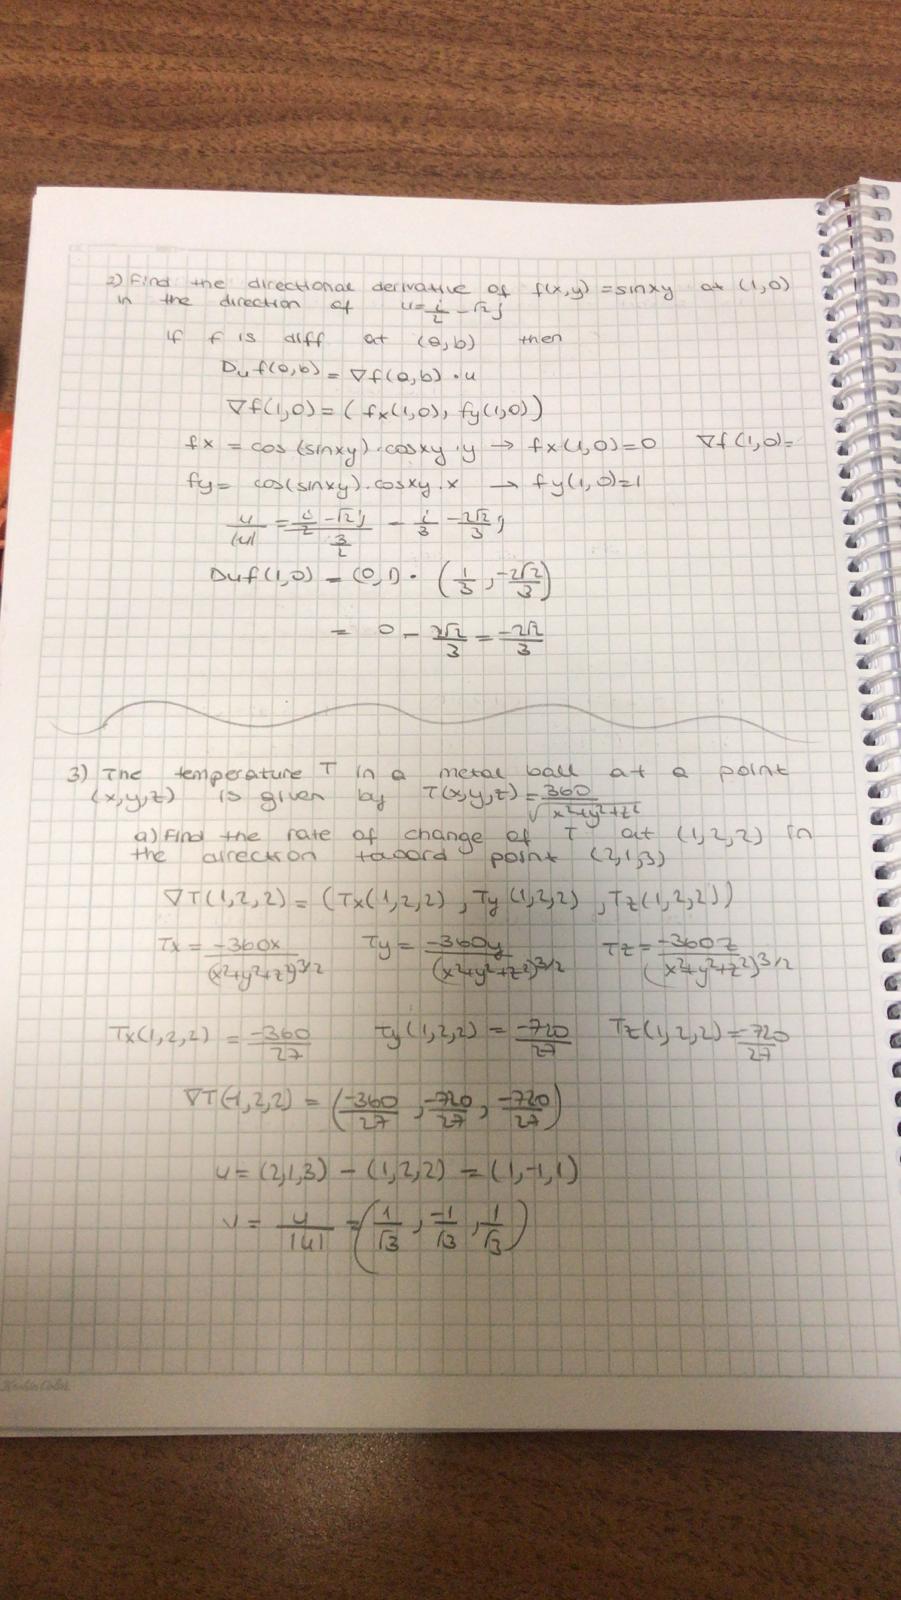 2) Find the directional derivative of f(x,y) = sinxy at (1,0)
in the direction of u = i/2 - √2j
if f is diff at (a,b) then
Duf(a,b) = ∇f(a,b) • u
∇f(1,0) = (fx(1,0), fy(1,0))
fx = cos(sinxy).cosxy.y → fx(1,0)=0 ∇f(1,0)=
fy = cos(sinxy).cosxy.x → fy(1,0)=1
u/|u| = (i/2 - √2j)/(3/2) - i/3 - 2√2/3 j
Duf(1,0) = (0,1) • (1/3, -2√2/3)
= 0 - 2√2/3 = -2√2/3
3) The temperature T in a metal ball at a point
(x,y,z) is given by T(x,y,z) = 360/√(x²+y²+z²)
a) Find the rate of change of T at (1,2,2) in
the direction taoord point (2,1,3)
∇T(1,2,2) = (Tx(1,2,2), Ty(1,2,2), Tz(1,2,2))
Tx = -360x/(x²+y²+z²)^3/2 Ty = -360y/(x²+y²+z²)^3/2 Tz = -360z/(x²+y²+z²)^3/2
Tx(1,2,2) = -360/27 Ty(1,2,2) = -720/27 Tz(1,2,2) = -720/27
∇T(-1,2,2) = (-360/27, -720/27, -720/27)
u = (2,1,3) - (1,2,2) = (1,-1,1)
v = u/|u| = (1/√3, -1/√3, 1/√3)